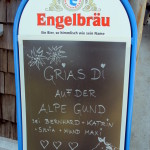 Engelbräu
Ein Bier, so himmlisch wie sein Name
GRIAS DI
AUF DER
ALPE GUND
BEI BERNHARD + KATRIN
+ SOFIA + HUND MAXI